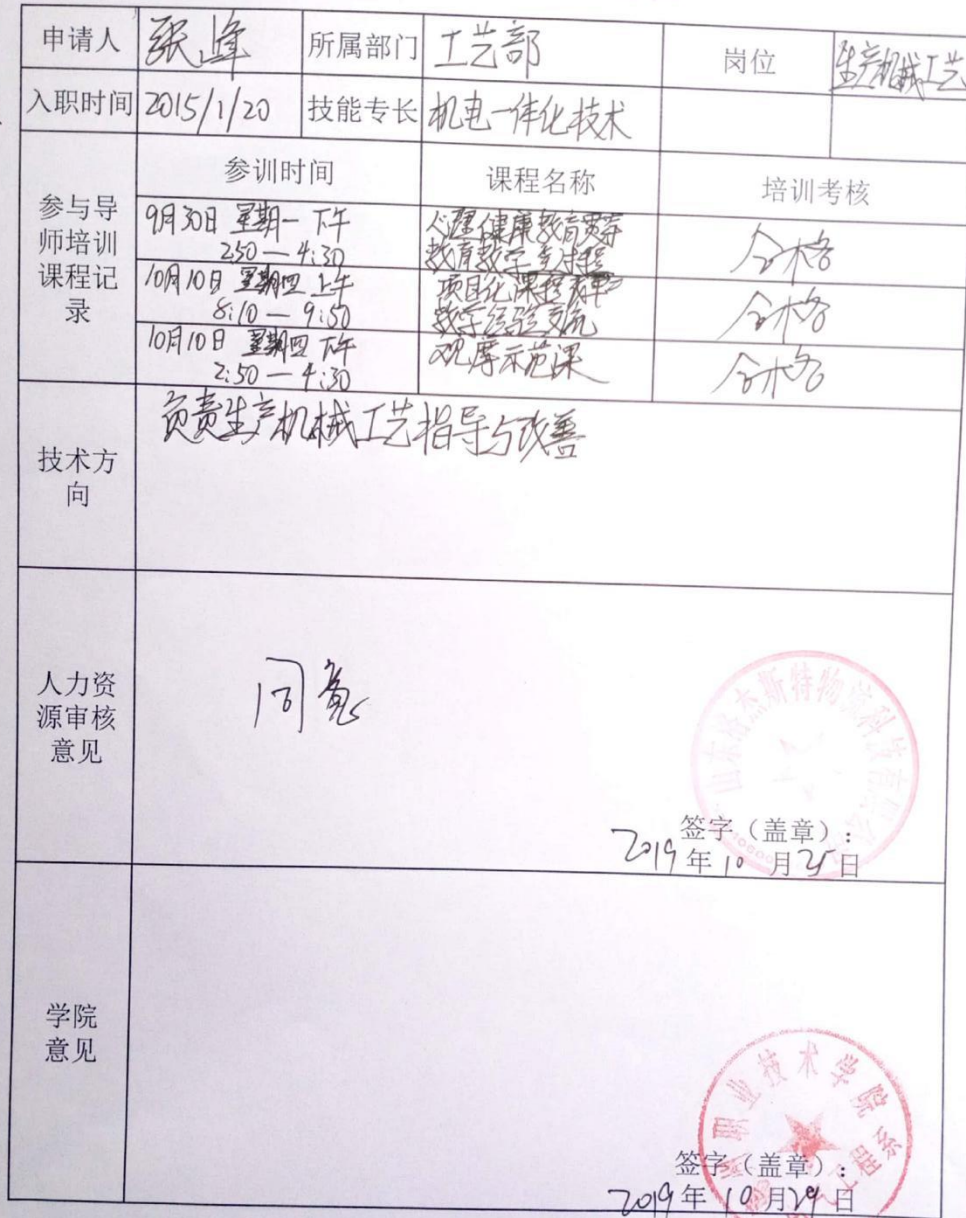 申请人 张峰 所属部门 工艺部 岗位 生产机械工艺
入职时间 2015/1/20 技能专长 机电一体化技术
参与导师培训课程记录 参训时间 课程名称 培训考核
9月30日 星期一 下午 心理健康教育贯穿
2:50—4:30 教育教学全过程 合格
10月10日 星期四 上午 项目化课程
8:10—9:50 教学经验交流 合格
10月10日 星期四 下午 观摩示范课
2:50—4:30 合格
技术方向 负责生产机械工艺指导与改善
人力资源审核意见 同意
山东洛杰斯特物流科技有限公司
签字（盖章）：
2019年10月25日
学院意见
职业技术学院
签字（盖章）：
2019年10月29日